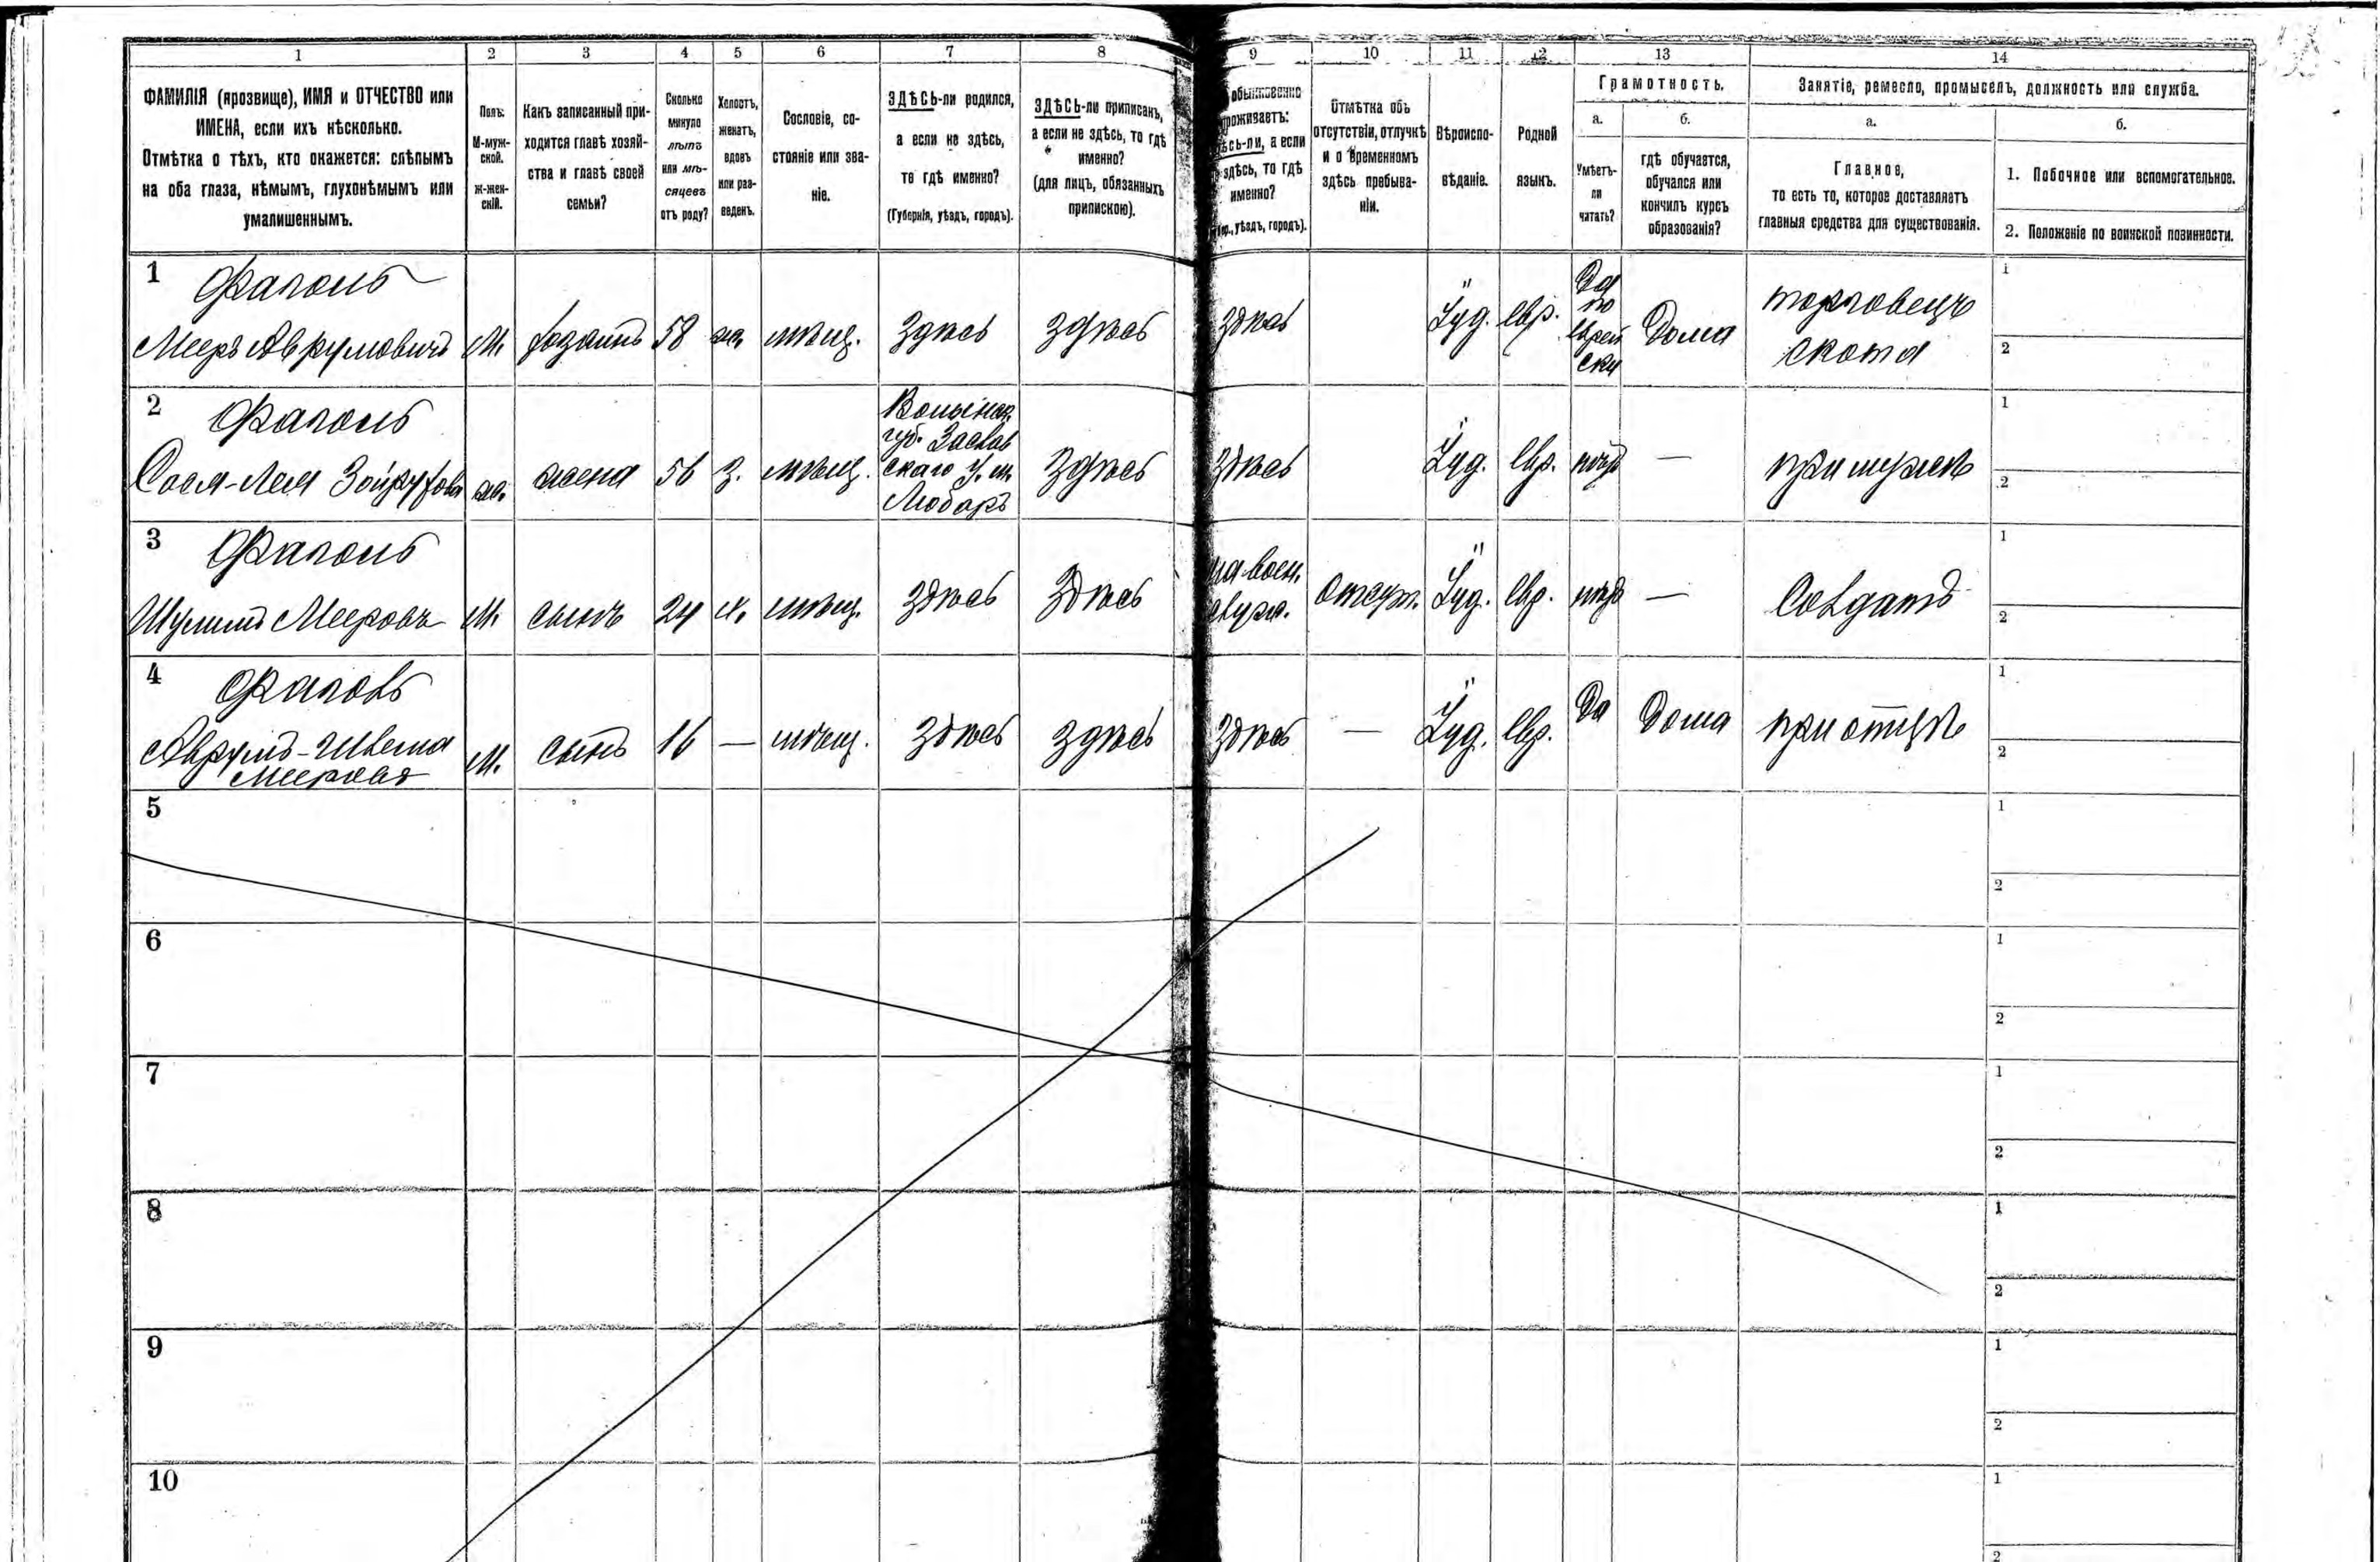 1 2 3 4 5 6 7 8 9 10 11 12 13 14
ФАМИЛІЯ (прозвище), ИМЯ и ОТЧЕСТВО или
ИМЕНА, если ихъ нѣсколько.
Отмѣтка о тѣхъ, кто окажется: слѣпымъ
на оба глаза, нѣмымъ, глухонѣмымъ или
умалишеннымъ.
Полъ:
М-муж-
ской.
ж-жен-
скій.
Какъ записанный при-
ходится главѣ хозяй-
ства и главѣ своей
семьи?
Сколько
минуло
лѣтъ
или мѣ-
сяцевъ
отъ роду?
Холостъ,
женатъ,
вдовъ
или раз-
веденъ.
Сословіе, со-
стояніе или зва-
ніе.
ЗДѢСЬ-ли родился,
а если не здѣсь,
то гдѣ именно?
(Губернія, уѣздъ, городъ).
ЗДѢСЬ-ли приписанъ,
а если не здѣсь, то гдѣ
именно?
(для лицъ, обязанныхъ
припискою).
обыкновенно
проживаетъ:
здѣсь-ли, а если
здѣсь, то гдѣ
именно?
уѣздъ, городъ).
Отмѣтка объ
отсутствіи, отлучкѣ
и о временномъ
здѣсь пребыва-
ніи.
Вѣроиспо-
вѣданіе.
Родной
языкъ.
Грамотность.
а.
Умѣетъ-
ли
читать?
б.
гдѣ обучается,
обучался или
кончилъ курсъ
образованія?
Занятіе, ремесло, промыселъ, должность или служба.
а.
Главное,
то есть то, которое доставляетъ
главныя средства для существованія.
б.
1. Побочное или вспомогательное.
2. Положеніе по воинской повинности.
1 Фаголь
Мееръ Аврумовичъ М. хозяинъ 58 ж. мѣщ. Здѣсь Здѣсь Здѣсь Іуд. Евр.
Да
по
Еврей
ски
Дома
торговецъ
скота
1
2
2 Фаголь
Сося-Лея ж. жена 56 З. мѣщ.
Волынск.
губ. Заслав
скаго у. м.
Любаръ
Здѣсь Здѣсь Іуд. Евр. нѣтъ — при мужѣ
1
2
3 Фаголь
Шулимъ Мееровъ М. сынъ 24 х. мѣщ. Здѣсь Здѣсь
на воен.
служб.
Отсут. Іуд. Евр. нѣтъ — Солдатъ
1
2
4 Фаголь
Аврумъ-Шлема
Мееровъ
М. сынъ 16 — мѣщ. Здѣсь Здѣсь Здѣсь — Іуд. Евр. Да Дома при отцѣ
1
2
5
1
2
6
1
2
7
1
2
8
1
2
9
1
2
10
1
2